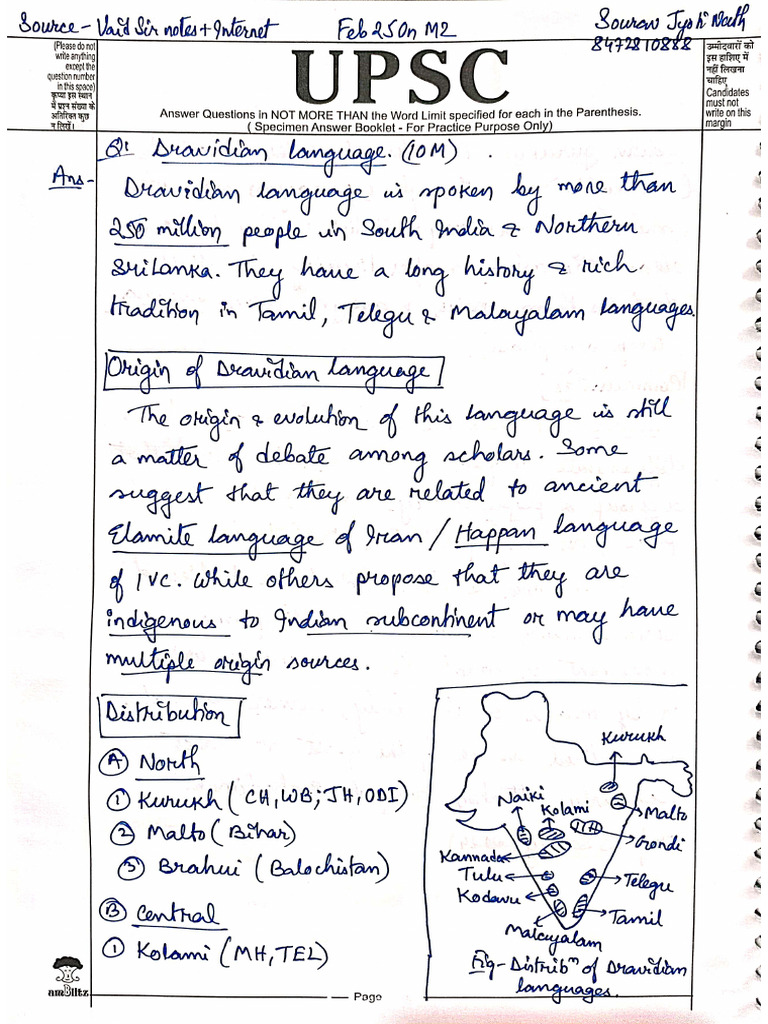 Source - Vaid Sir notes + Internet
Feb 25 On M2
Sourav Jyoti Nath
8472810888
(Please do not
write anything
except the
question number
in this space)
कृपया इस स्थान
में प्रश्न संख्या के
अतिरिक्त कुछ
न लिखें।
UPSC
Answer Questions in NOT MORE THAN the Word Limit specified for each in the Parenthesis.
( Specimen Answer Booklet - For Practice Purpose Only)
उम्मीदवारों को
इस हाशिए में
नहीं लिखना
चाहिए
Candidates
must not
write on this
margin
Q: Dravidian language. (10M)
Ans-
Dravidian language is spoken by more than
250 million people in South India & Northern
Srilanka. They have a long history & rich
tradition in Tamil, Telegu & Malayalam languages.
Origin of Dravidian language
The origin & evolution of this language is still
a matter of debate among scholars. Some
suggest that they are related to ancient
Elamite language of Iran / Happan language
of IVC. While others propose that they are
indigenous to Indian subcontinent or may have
multiple origin sources.
Distribution
A North
1 Kurukh (CH, WB; JH, ODI)
2 Malto (Bihar)
3 Brahui (Balochistan)
B Central
1 Kolami (MH, TEL)
Kurukh
Naiki
Kolami
Malto
Gondi
Kannada
Tulu
Telegu
Kodavu
Tamil
Malayalam
Fig - Distribⁿ of Dravidian
languages.
amBlitz
Page